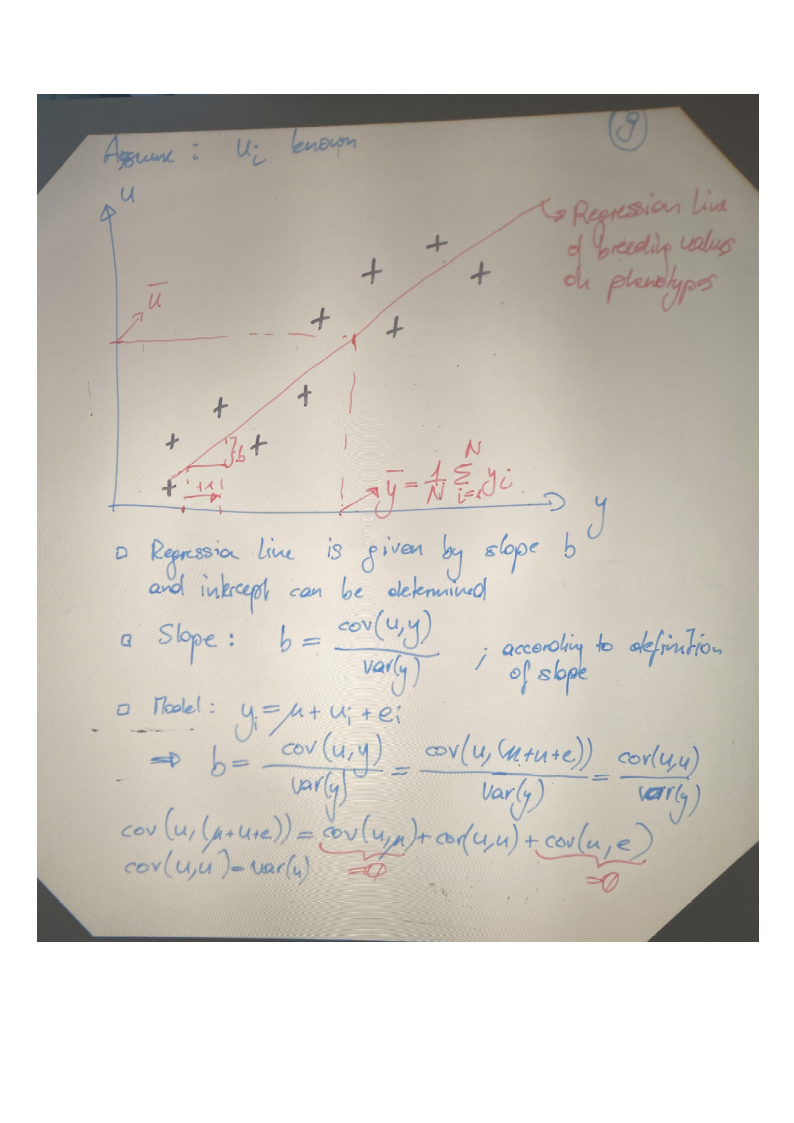 9
Assume : uᵢ known
u
Regression line
of breeding values
on phenotypes
ū
b
+1
ȳ = 1/N Σᵢ₌₁ᴺ yᵢ
y
Regression line is given by slope b
and intercept can be determined
Slope : b = cov(u,y) / var(y) ; according to definition
of slope
Model : yᵢ = μ + uᵢ + eᵢ
⇒ b = cov(u,y) / var(y) = cov(u,(μ+u+e)) / var(y) = cov(u,u) / var(y)
cov(u,(μ+u+e)) = cov(u,μ) + cov(u,u) + cov(u,e)
=0 =0
cov(u,u) = var(u)